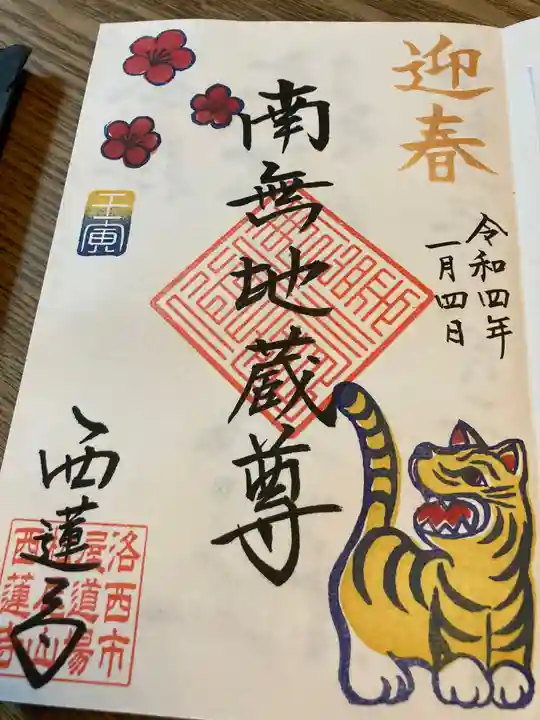 迎春
令和四年
一月四日
南無地蔵尊
壬寅
西蓮寺
洛西市
道場
西蓮寺